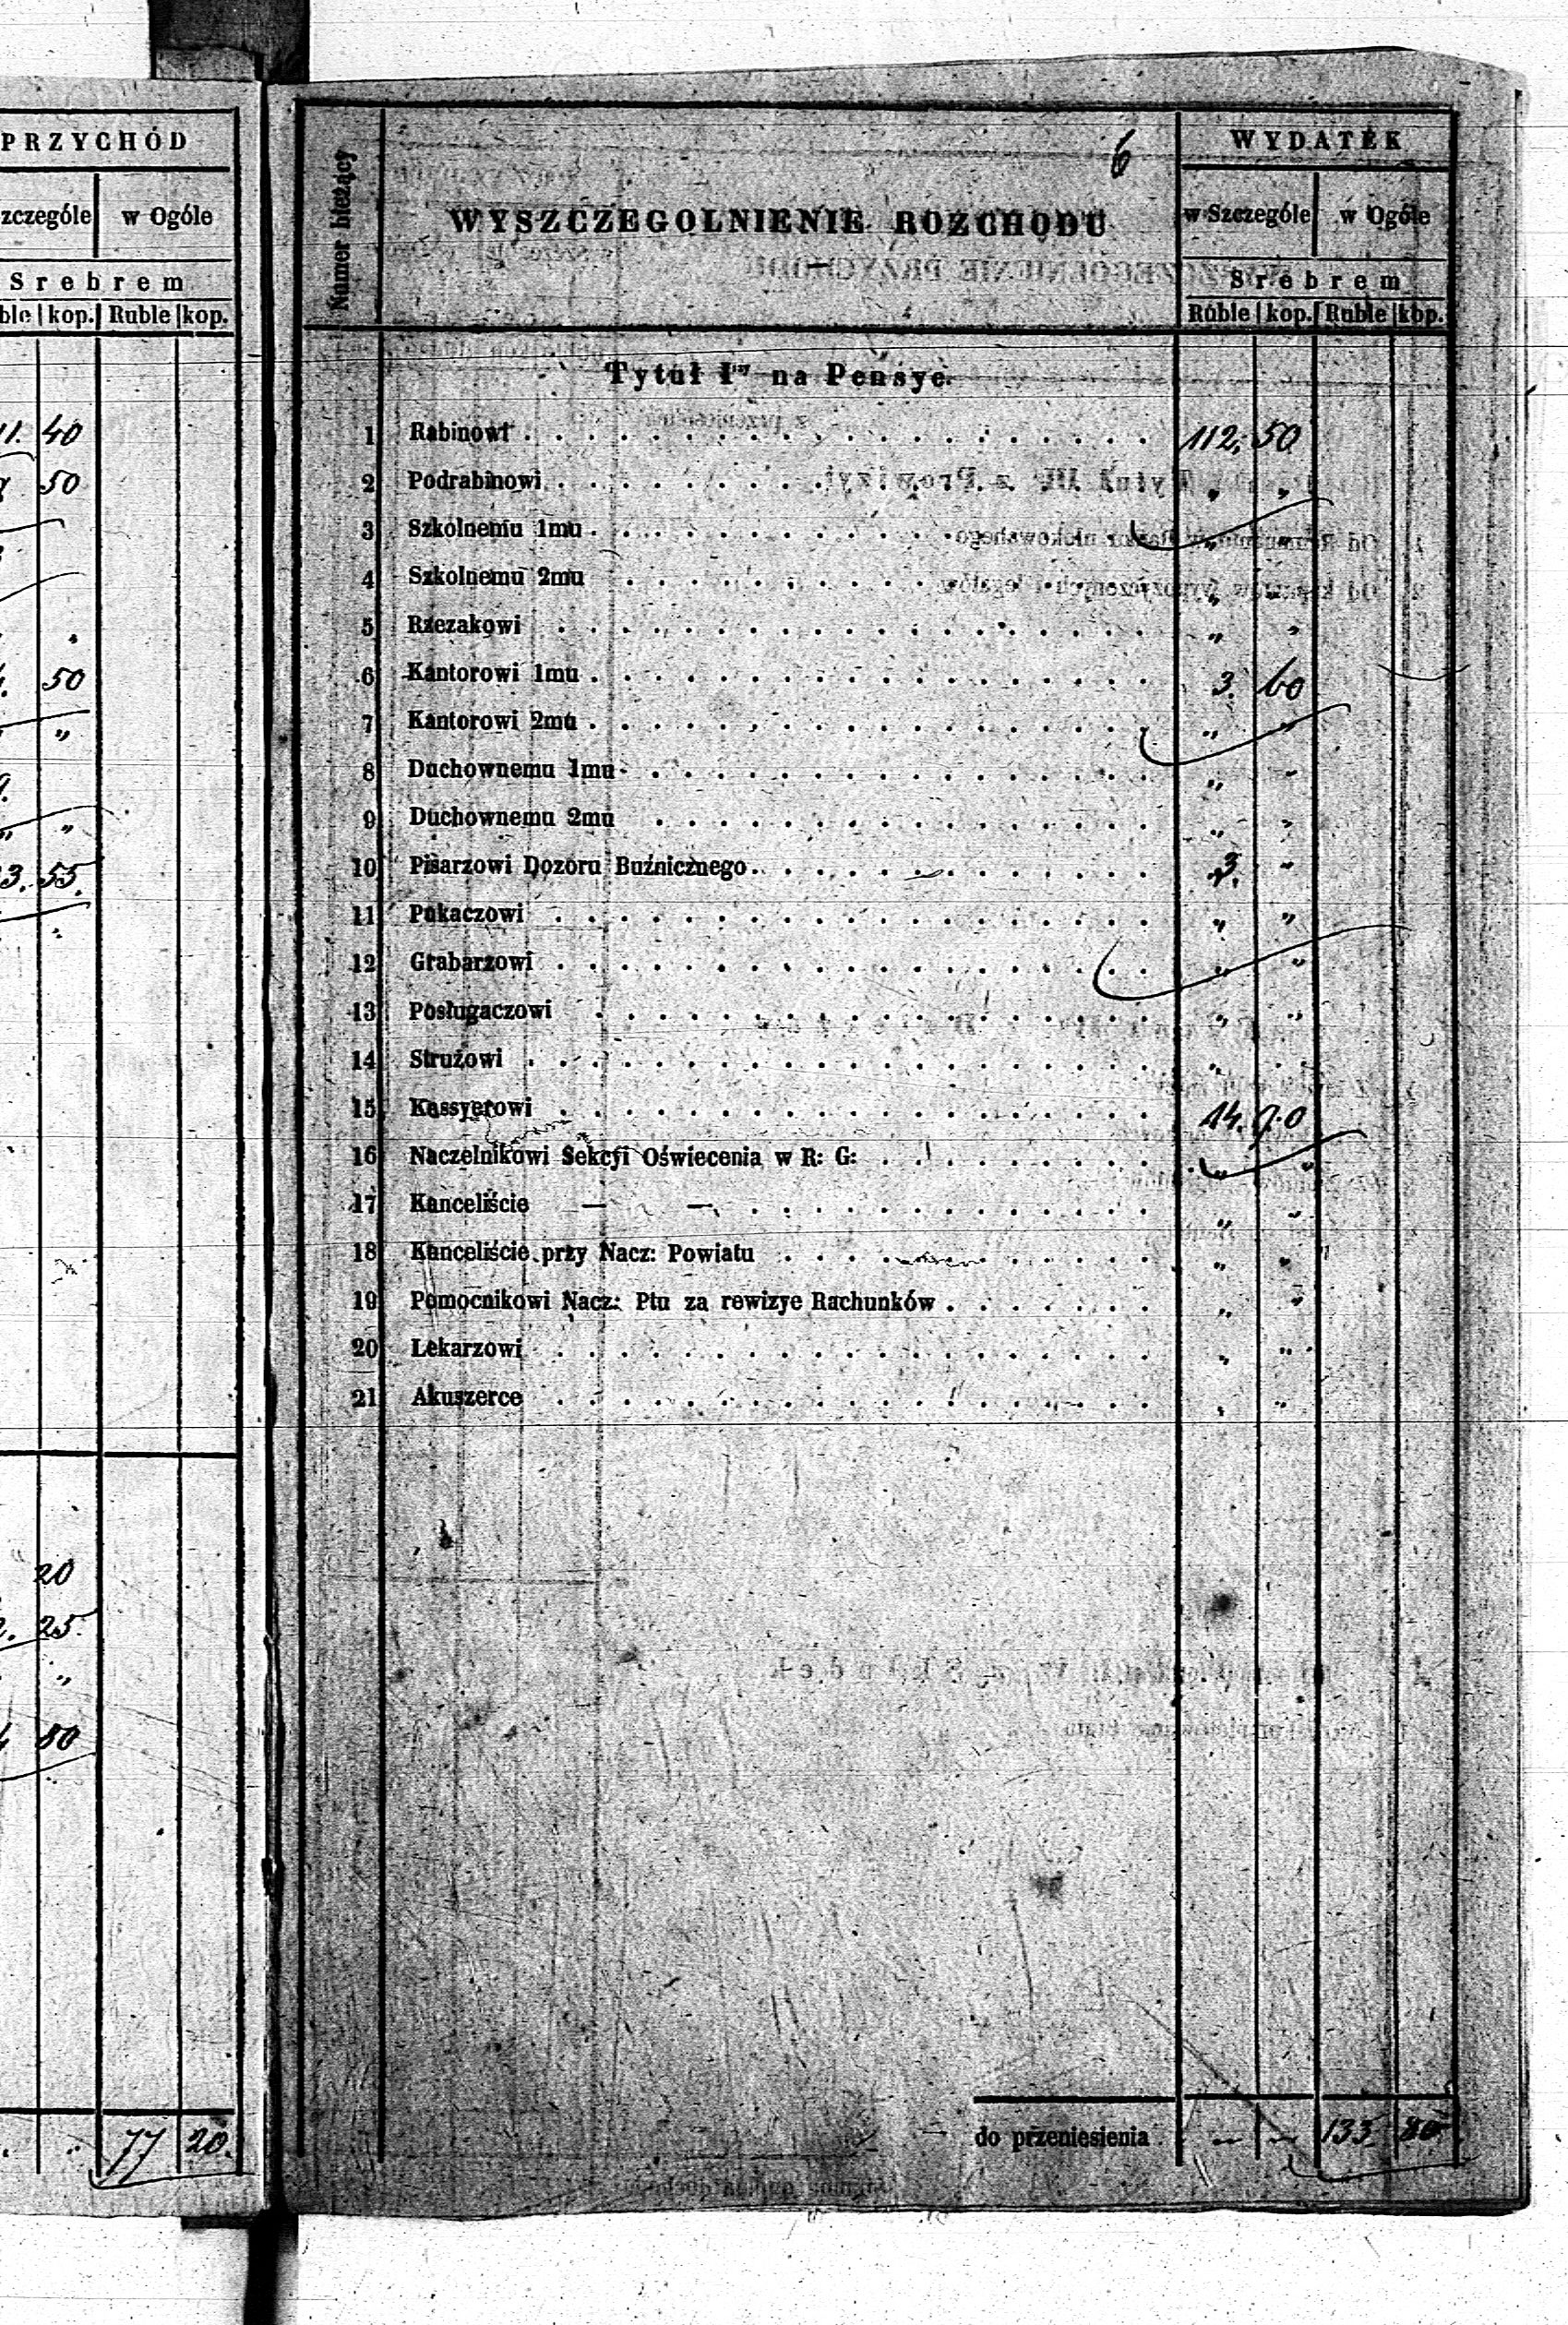 PRZYCHÓD
w Ogóle
Srebrem
kop. Ruble kop.
40
50
50
"
" "
3. 55.
20
25.
"
80
77 20.
6
Numer bieżący
WYSZCZEGOLNIENIE ROZCHODU
WYDATEK
w Szczególe w Ogóle
Srebrem
Ruble kop. Ruble kop.
Tytuł Iszy na Pensye.
1 Rabinowi . . . 112. 50
2 Podrabinowi . . . " "
3 Szkolnemu 1mu . . . " "
4 Szkolnemu 2mu . . . " "
5 Rzezakowi . . . " "
6 Kantorowi 1mu . . . 3. 60
7 Kantorowi 2mu . . . " "
8 Duchownemu 1mu . . . " "
9 Duchownemu 2mu . . . " "
10 Pisarzowi Dozoru Bużnicznego . . . 3. "
11 Pukaczowi . . . " "
12 Grabarzowi . . . " "
13 Posługaczowi . . . " "
14 Stružowi . . . " "
15 Kassyerowi . . . 14. 70
16 Naczelnikowi Sekcyi Oświecenia w R: G: . . . " "
17 Kanceliście — — . . . " "
18 Kanceliście przy Nacz: Powiatu . . . " "
19 Pomocnikowi Nacz: Ptu za rewizye Rachunków . . . " "
20 Lekarzowi . . . " "
21 Akuszerce . . . " "
do przeniesienia . — — 133. 80